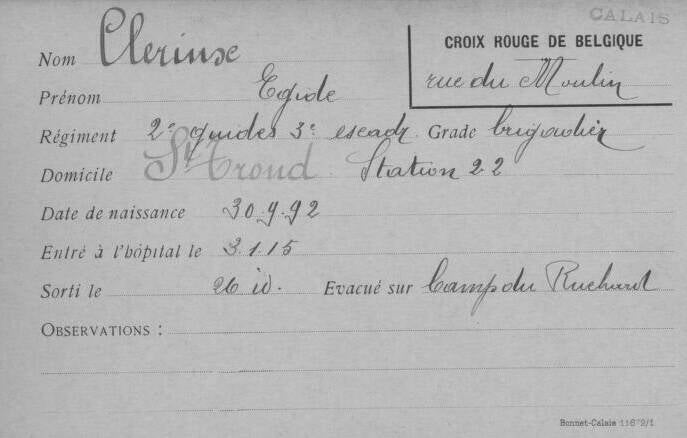 CALAIS
CROIX ROUGE DE BELGIQUE
rue du Moulin
Nom Clerinx
Prénom Egide
Régiment 2e guides 3e escadr Grade brigadier
Domicile St Trond Station 22
Date de naissance 30.9.92
Entré à l'hôpital le 3.1.15
Sorti le 26 id. Evacué sur Camp du Ruchard
OBSERVATIONS :
Bonnet-Calais 11672/1